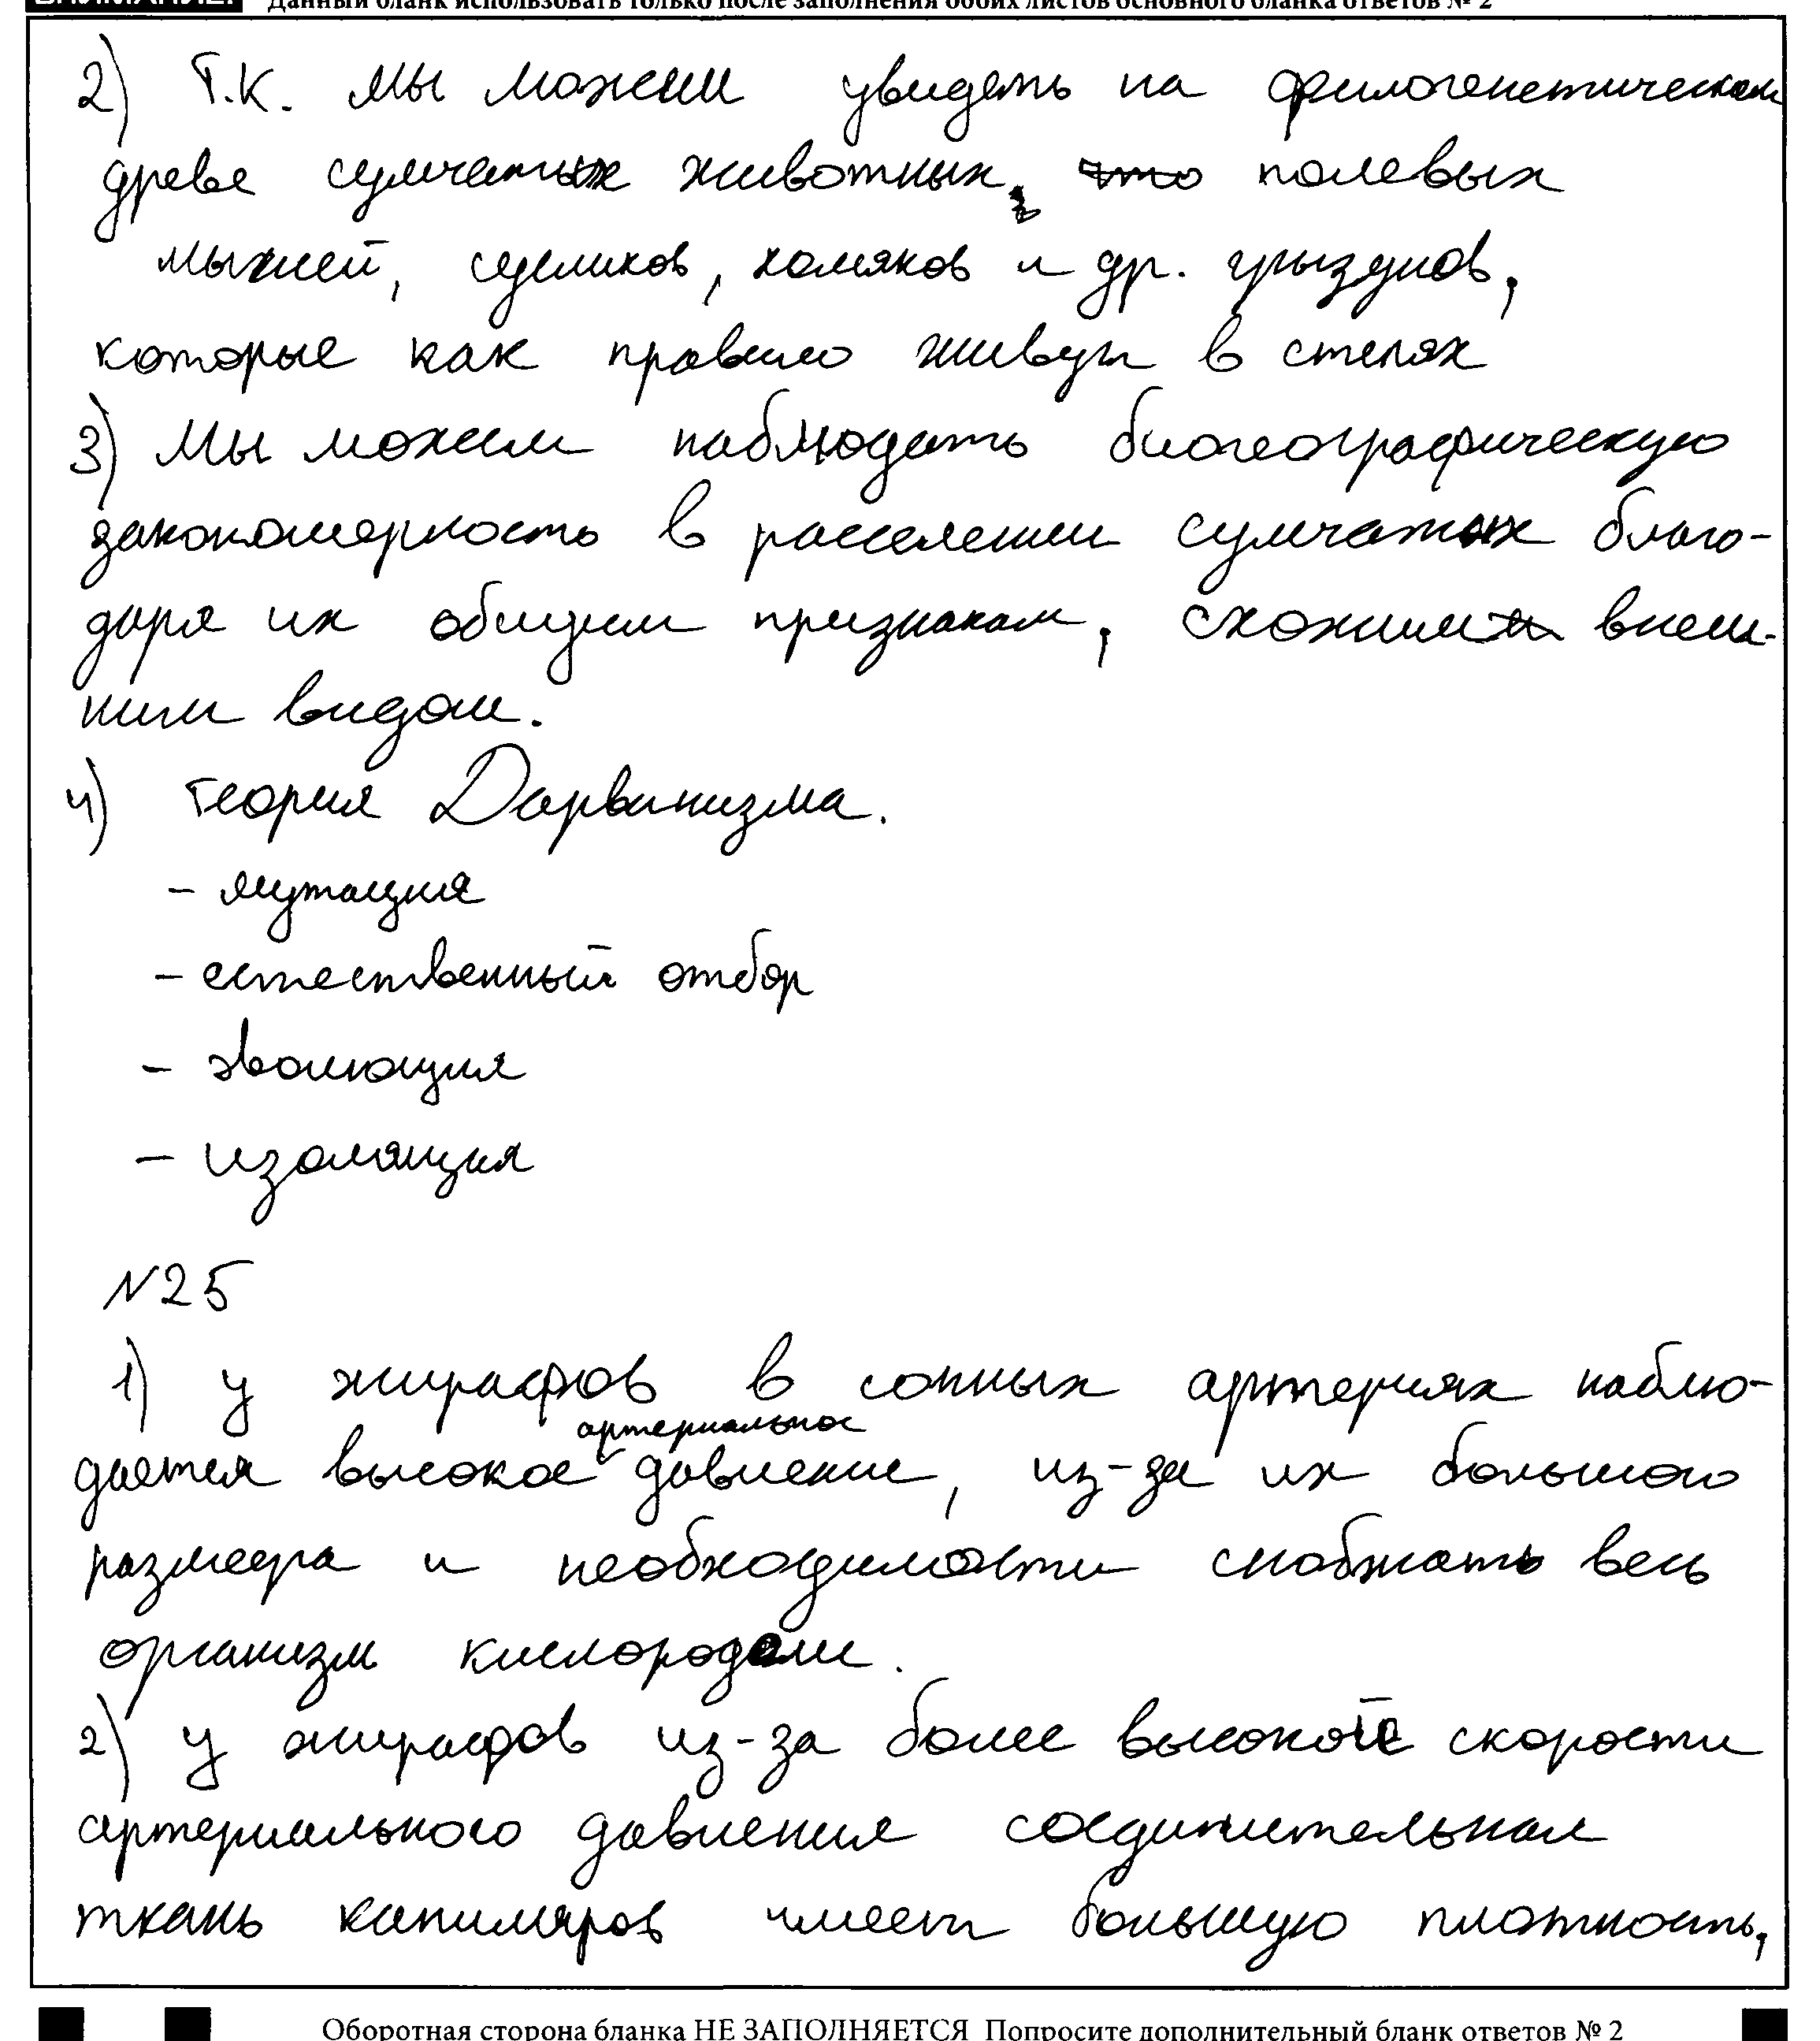 ВНИМАНИЕ! Данный бланк использовать только после заполнения обоих листов основного бланка ответов № 2
2) Т.К. мы можем увидеть на филогенетическом
древе сумчатых животных, что полевых
мышей, сусликов, хомяков и др. грызунов,
которые как правило живут в степях
3) Мы можем наблюдать биогеографическую
закономерность в расселении сумчатых благо-
даря их общим признакам, схожим внеш-
ним видом.
4) Теория Дарвинизма.
- мутация
- естественный отбор
- эволюция
- изоляция
№25
1) у жирафов в сонных артериях наблю-
дается высокое артериальное давление, из-за их большого
размера и необходимости снабжать весь
организм кислородом.
2) у жирафов из-за более высокой скорости
артериального давления соединительная
ткань капиляров имеет большую плотность,
Оборотная сторона бланка НЕ ЗАПОЛНЯЕТСЯ Попросите дополнительный бланк ответов № 2